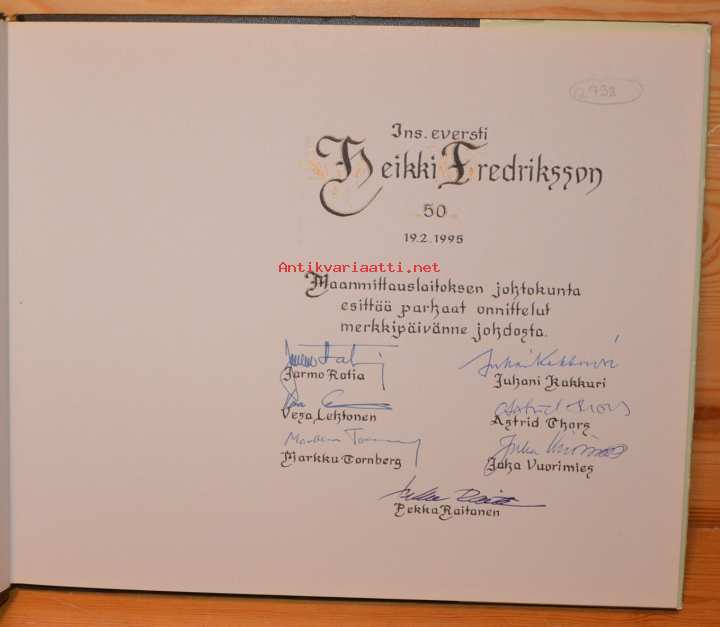 2938
Ins. eversti
Heikki Fredriksson
50
19.2.1995
Antikvariaatti.net
Maanmittauslaitoksen johtokunta
esittää parhaat onnittelut
merkkipäivänne johdosta.
Jarmo Ratia Juhani Kakkuri
Vesa Lehtonen Astrid Thors
Markku Tornberg Juha Vuorimies
Pekka Raitanen